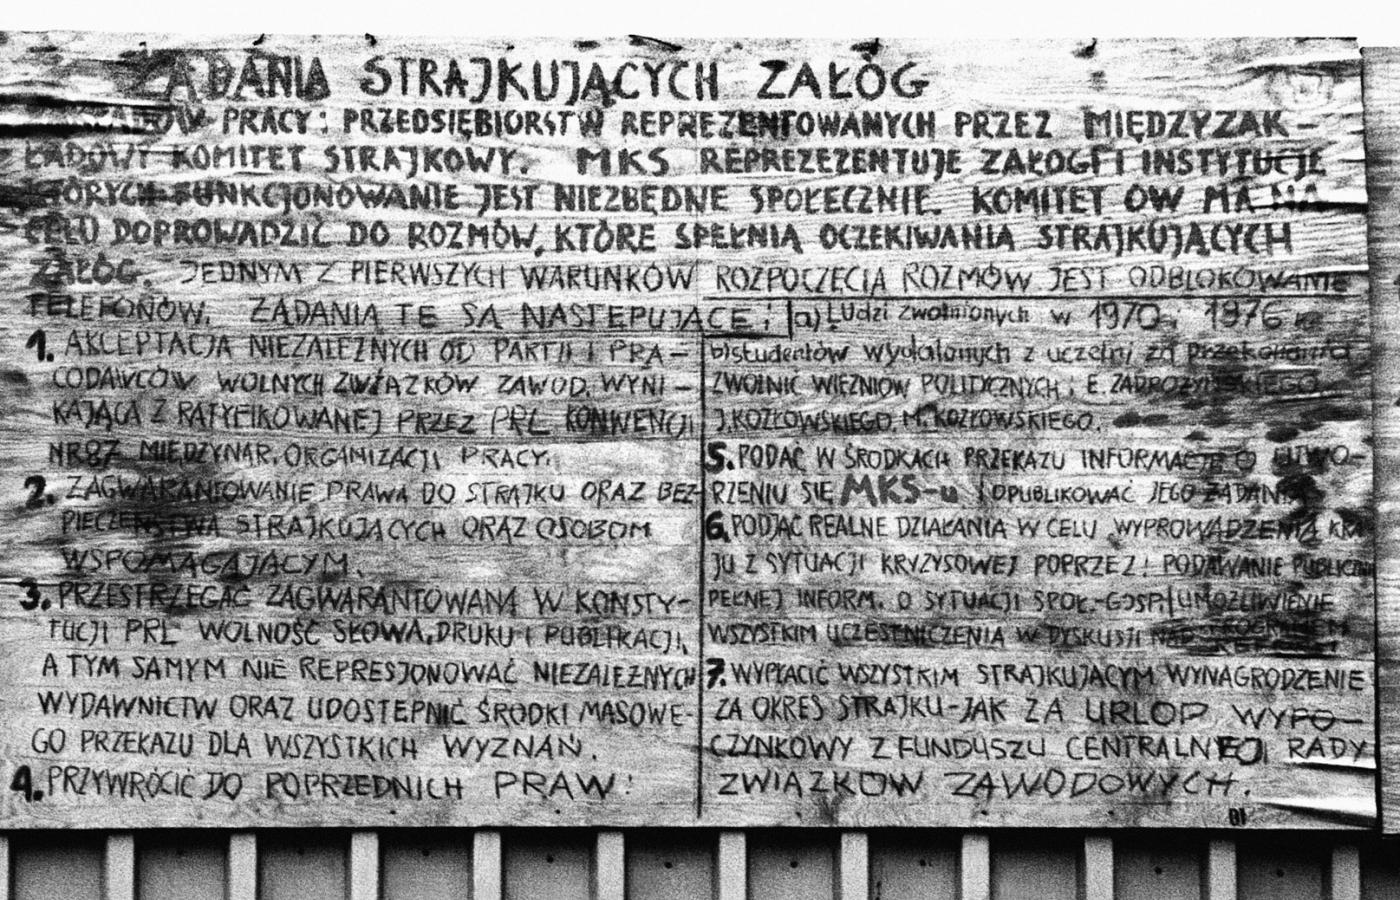 ŻĄDANIA STRAJKUJĄCYCH ZAŁÓG
PRACY i PRZEDSIĘBIORSTW REPREZENTOWANYCH PRZEZ MIĘDZYZAK-
ŁADOWY KOMITET STRAJKOWY. MKS REPREZEZENTUJE ZAŁOGI I INSTYTUCJE
KTÓRYCH FUNKCJONOWANIE JEST NIEZBĘDNE SPOŁECZNIE. KOMITET ÓW MA NA
CELU DOPROWADZIĆ DO ROZMÓW, KTÓRE SPEŁNIĄ OCZEKIWANIA STRAJKUJĄCYCH
ZAŁÓG. JEDNYM Z PIERWSZYCH WARUNKÓW ROZPOCZĘCIA ROZMÓW JEST ODBLOKOWANIE
TELEFONÓW. ŻĄDANIA TE SĄ NASTĘPUJĄCE:
1. AKCEPTACJA NIEZALEŻNYCH OD PARTII I PRA-
CODAWCÓW WOLNYCH ZWIĄZKÓW ZAWOD. WYNI-
KAJĄCA Z RATYFIKOWANEJ PRZEZ PRL KONWENCJI
NR 87 MIĘDZYNAR. ORGANIZACJI PRACY.
2. ZAGWARANTOWANIE PRAWA DO STRAJKU ORAZ BEZ-
PIECZEŃSTWA STRAJKUJĄCYCH ORAZ OSOBOM
WSPOMAGAJĄCYM.
3. PRZESTRZEGAĆ ZAGWARANTOWANĄ W KONSTY-
TUCJI PRL WOLNOŚĆ SŁOWA, DRUKU I PUBLIKACJI,
A TYM SAMYM NIE REPRESJONOWAĆ NIEZALEŻNYCH
WYDAWNICTW ORAZ UDOSTĘPNIĆ ŚRODKI MASOWE-
GO PRZEKAZU DLA WSZYSTKICH WYZNAŃ.
4. PRZYWRÓCIĆ DO POPRZEDNICH PRAW:
a) Ludzi zwolnionych w 1970 i 1976 r.
b) studentów wydalonych z uczelni za przekonania
ZWOLNIĆ WIĘŹNIÓW POLITYCZNYCH i E. ZADROŻYŃSKIEGO
J. KOZŁOWSKIEGO, M. KOZŁOWSKIEGO.
5. PODAĆ W ŚRODKACH PRZEKAZU INFORMACJĘ O UTWO-
RZENIU SIĘ MKS-u I OPUBLIKOWAĆ JEGO ŻĄDANIA
6. PODJĄĆ REALNE DZIAŁANIA W CELU WYPROWADZENIA KRA-
JU Z SYTUACJI KRYZYSOWEJ POPRZEZ: PODAWANIE PUBLICZNIE
PEŁNEJ INFORM. O SYTUACJI SPOŁ.-GOSP. UMOŻLIWIENIE
WSZYSTKIM UCZESTNICZENIA W DYSKUSJI NAD PROGRAMEM
7. WYPŁACIĆ WSZYSTKIM STRAJKUJĄCYM WYNAGRODZENIE
ZA OKRES STRAJKU-JAK ZA URLOP WYPO-
CZYNKOWY Z FUNDUSZU CENTRALNEJ RADY
ZWIĄZKÓW ZAWODOWYCH.